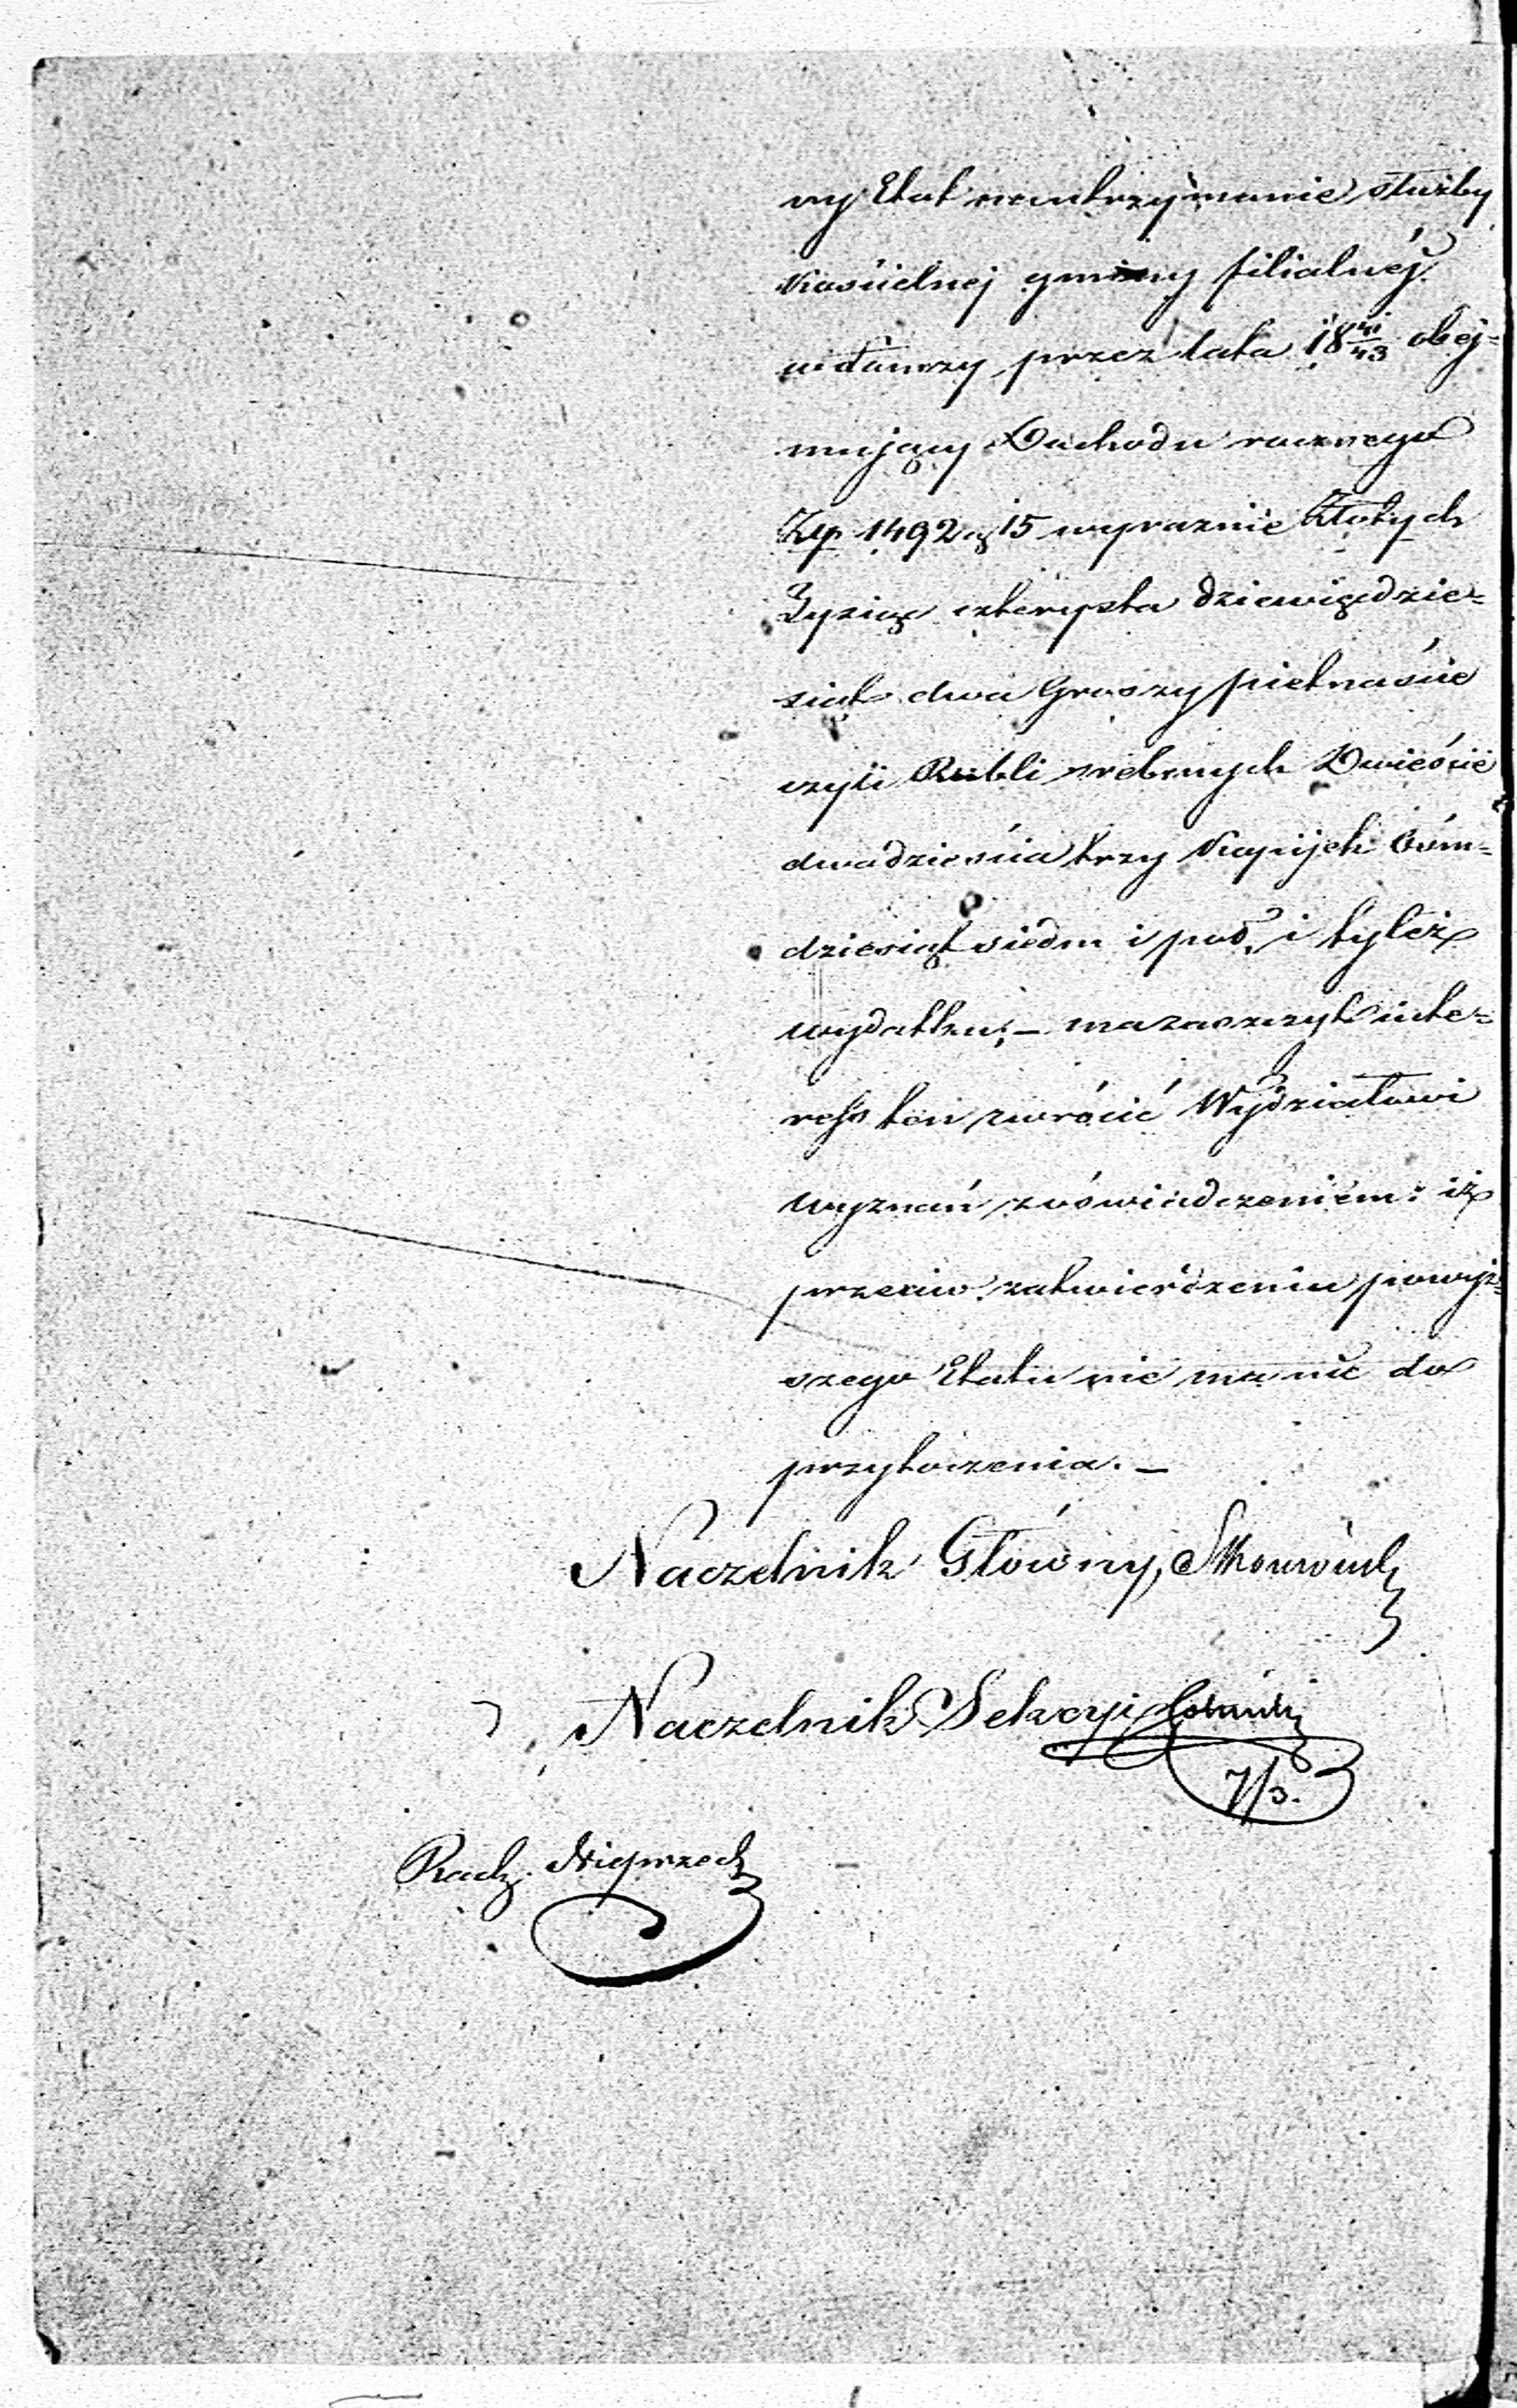 ny Etat na utrzymanie służby
Kościelnej gminy filialnéj
w Tanczy przez lata 18 41/43 obej=
mujący Dochodu rocznego
Złp 1492 g 15 wyraznie Złotych
Tysiąc czterysta dziewiędzie=
siąt dwa Groszy pietnaście
czyli Rubli srebrnych Dwieście
dwadzieścia trzy Kopijek Ośm=
dziesiąt siedm i poł, i tyleż
wydatku; – ma zaszczyt inte=
ress ten zwrócić Wydziałowi
Wyznań z oświadczeniem: iż
przeciw zatwierdzeniu powyż=
szego Etatu nie ma nic do
przytoczenia. –
Naczelnik Główny,
Naczelnik Sekcyi
7/3.